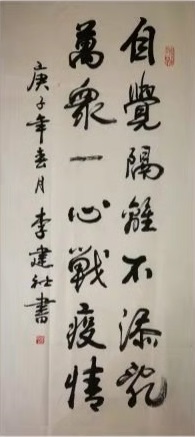 自覺隔離不添亂
萬衆一心戰疫情
庚子年春月李建社書